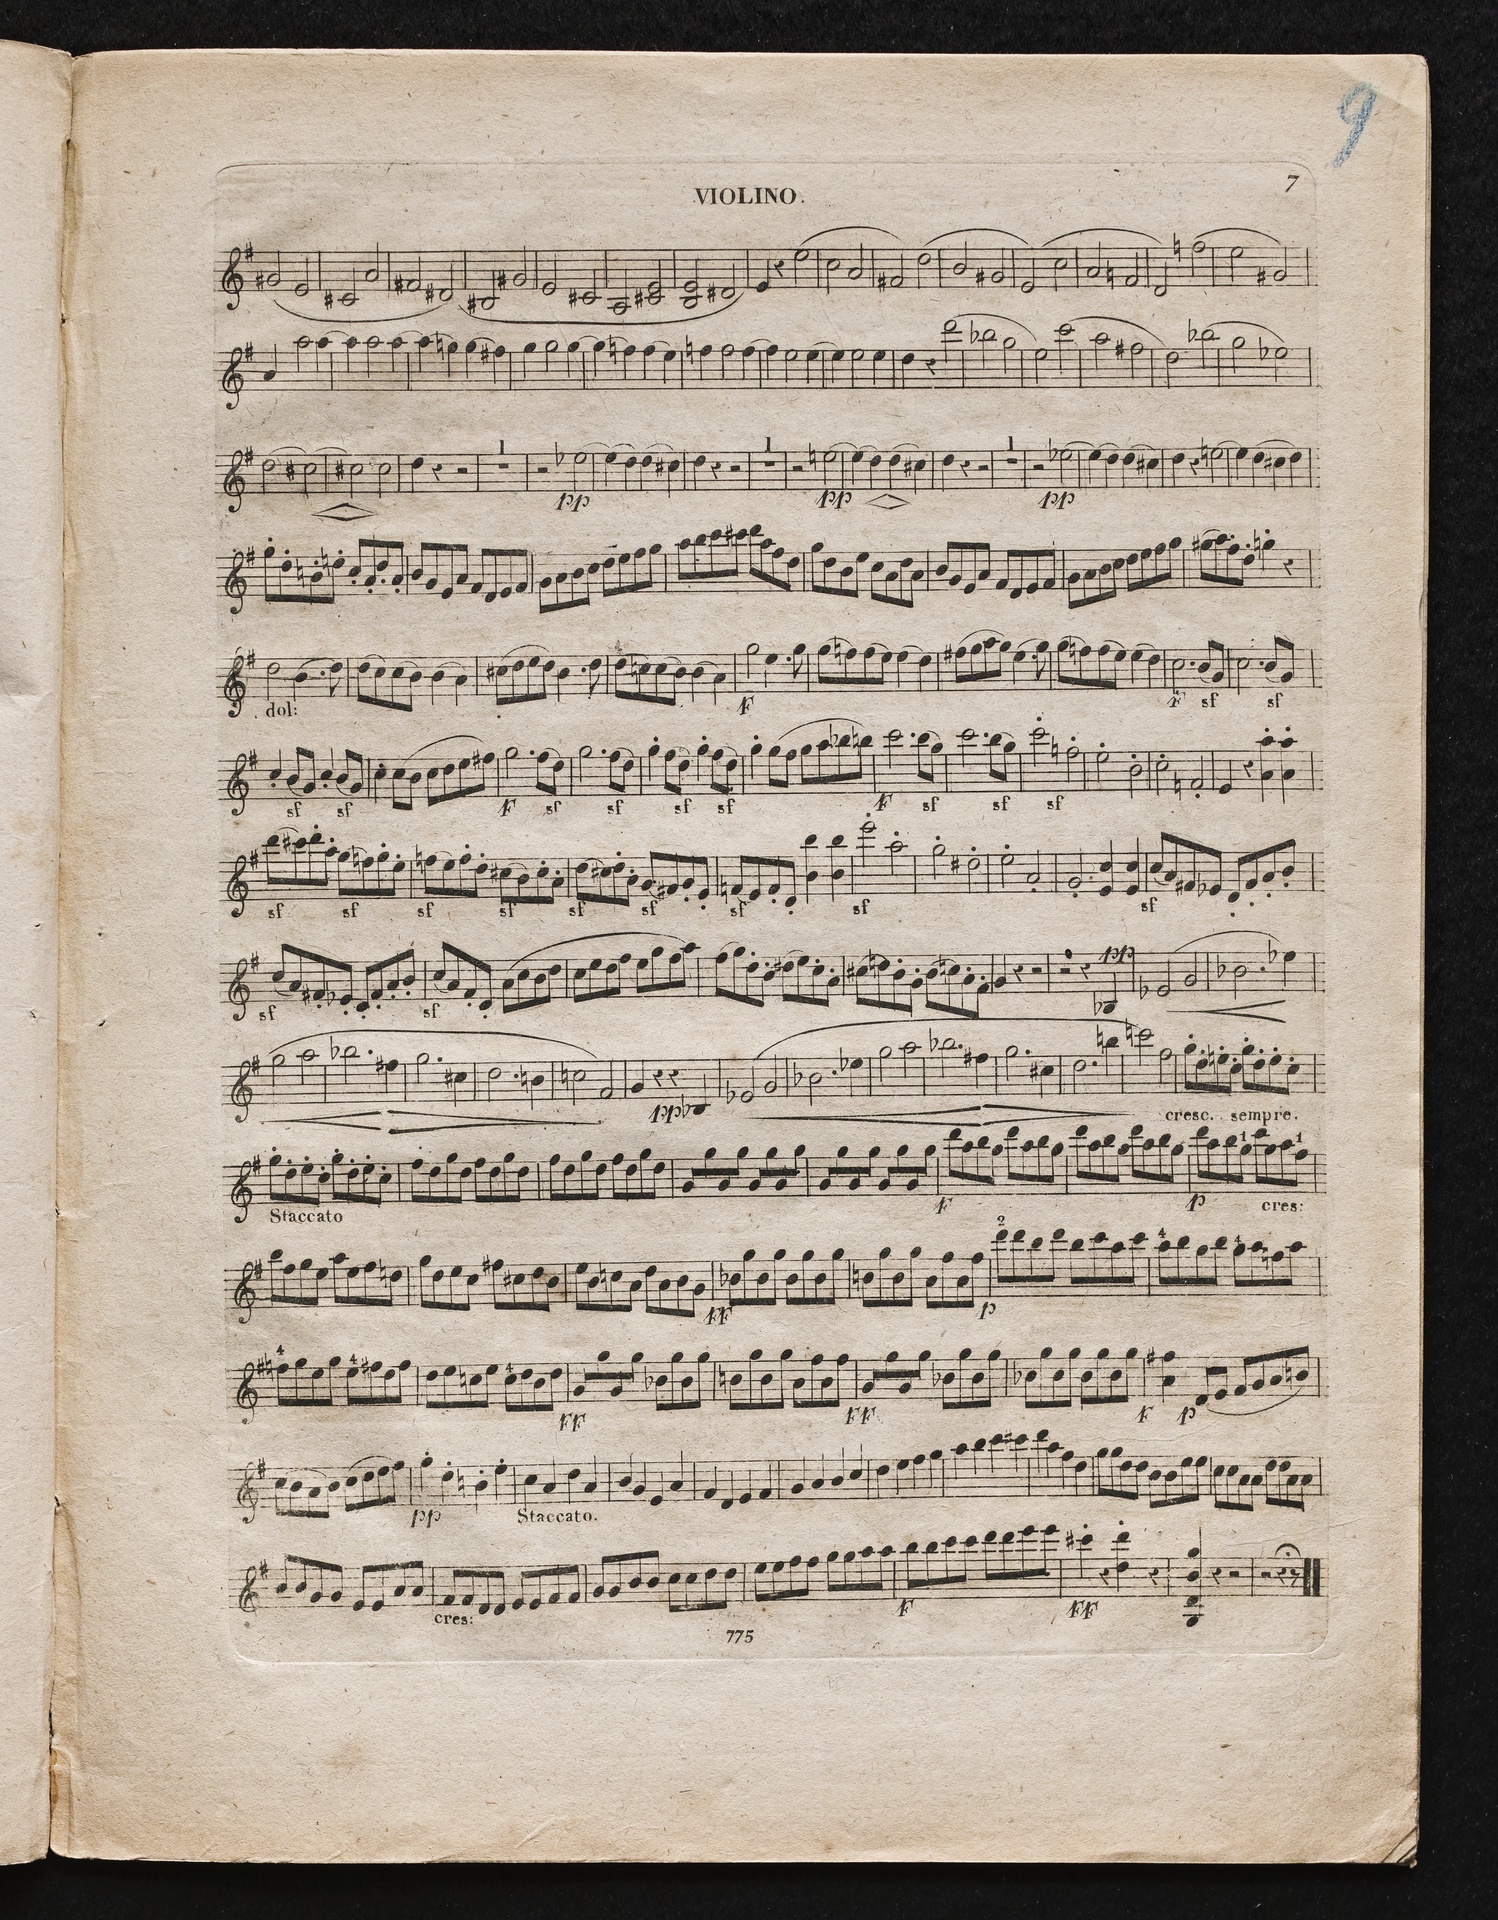 9
7
VIOLINO.
1 pp 1 pp 1 pp
dol: F F sf sf
sf sf F sf sf sf sf F sf sf sf
sf sf sf sf sf sf sf sf sf
sf sf pp
pp cresc. sempre.
Staccato F p 1 cres: 1
FF p 2 4 4
4 4 4 FF FF F p
pp Staccato.
cres: F FF
775